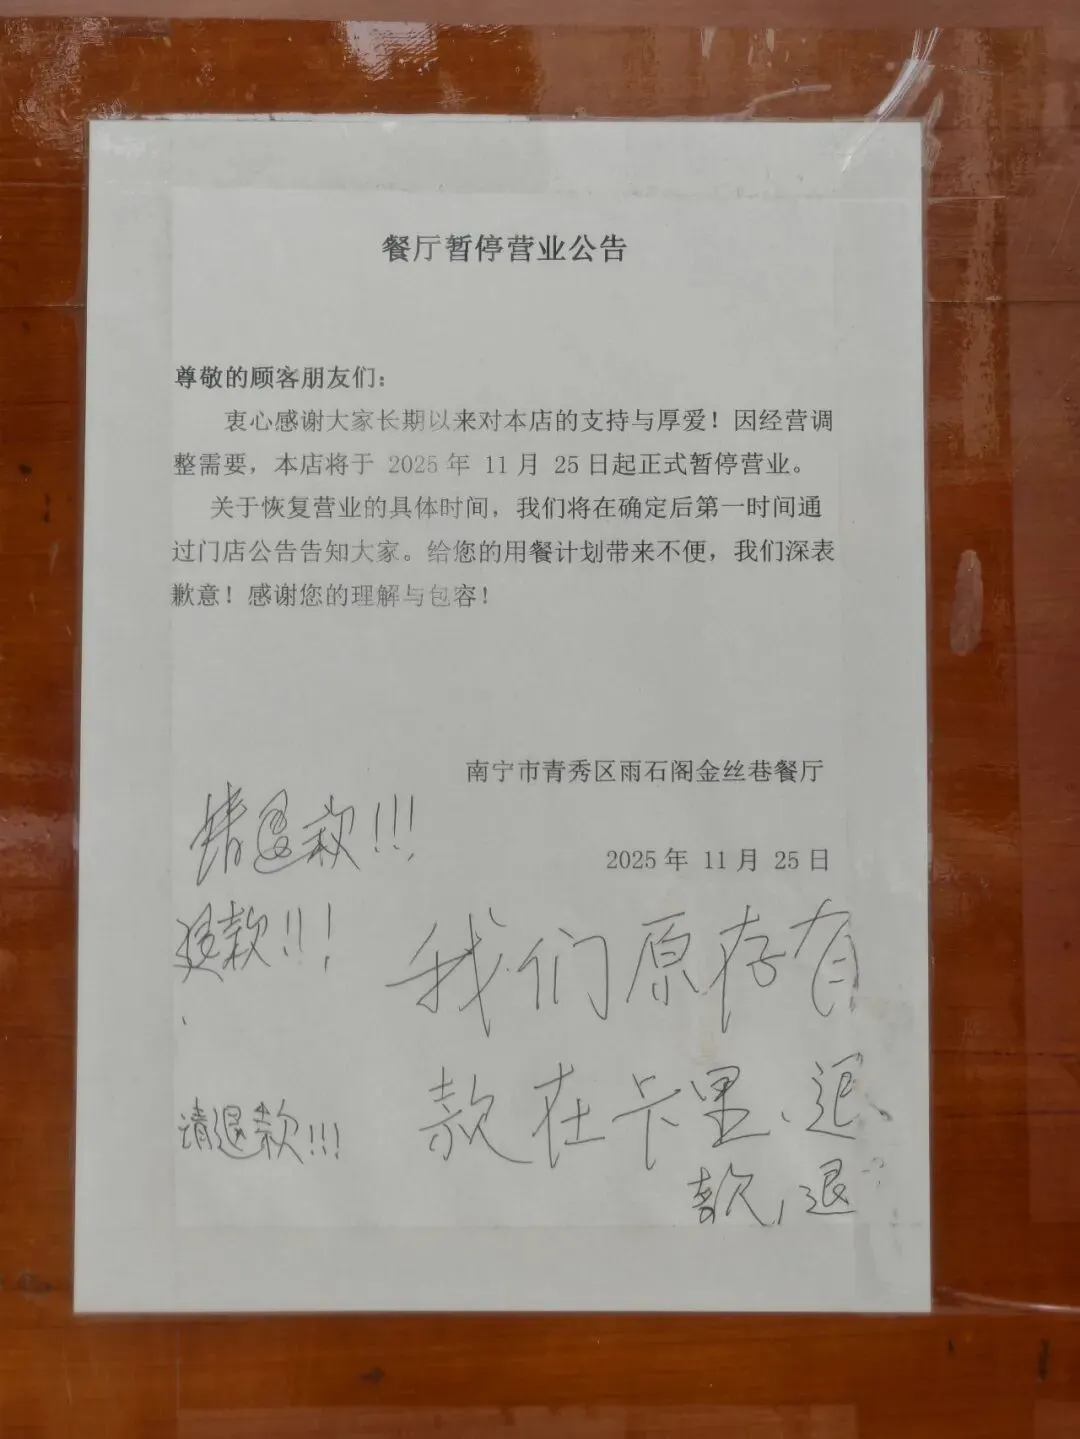 餐厅暂停营业公告
尊敬的顾客朋友们：
衷心感谢大家长期以来对本店的支持与厚爱！因经营调
整需要，本店将于 2025 年 11 月 25 日起正式暂停营业。
关于恢复营业的具体时间，我们将在确定后第一时间通
过门店公告告知大家。给您的用餐计划带来不便，我们深表
歉意！感谢您的理解与包容！
南宁市青秀区雨石阁金丝巷餐厅
2025 年 11 月 25 日
请退款!!!
退款!!!
请退款!!!
我们原存有
款在卡里、退
款，退